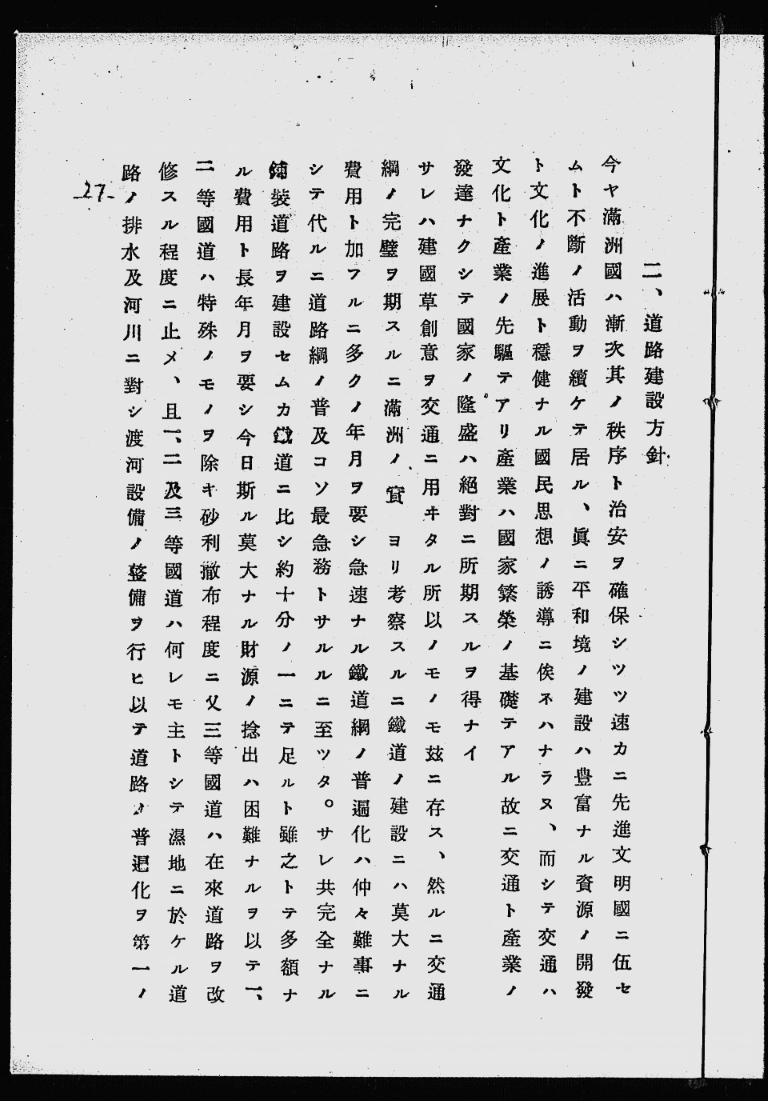 二、道路建設方針
今ヤ滿洲國ハ漸次其ノ秩序ト治安ヲ確保シツツ速カニ先進文明國ニ伍セ
ムト不斷ノ活動ヲ續ケテ居ル、眞ニ平和境ノ建設ハ豊富ナル資源ノ開發
ト文化ノ進展ト穩健ナル國民思想ノ誘導ニ俟ネハナラヌ、而シテ交通ハ
文化ト產業ノ先驅テアリ產業ハ國家繁榮ノ基礎テアル故ニ交通ト產業ノ
發達ナクシテ國家ノ隆盛ハ絕對ニ所期スルヲ得ナイ
サレハ建國草創意ヲ交通ニ用ヰタル所以ノモノモ玆ニ存ス、然ルニ交通
綱ノ完璧ヲ期スルニ滿洲ノ實 ヨリ考察スルニ鐵道ノ建設ニハ莫大ナル
費用ト加フルニ多クノ年月ヲ要シ急速ナル鐵道綱ノ普遍化ハ仲々難事ニ
シテ代ルニ道路綱ノ普及コソ最急務トサルルニ至ツタ。サレ共完全ナル
鋪裝道路ヲ建設セムカ鐵道ニ比シ約十分ノ一ニテ足ルト雖之トテ多額ナ
ル費用ト長年月ヲ要シ今日斯ル莫大ナル財源ノ捻出ハ困難ナルヲ以テ一、
二等國道ハ特殊ノモノヲ除キ砂利撒布程度ニ父三等國道ハ在來道路ヲ改
修スル程度ニ止メ、且一、二及三等國道ハ何レモ主トシテ濕地ニ於ケル道
路ノ排水及河川ニ對シ渡河設備ノ整備ヲ行ヒ以テ道路ノ普遍化ヲ第一ノ
-27-